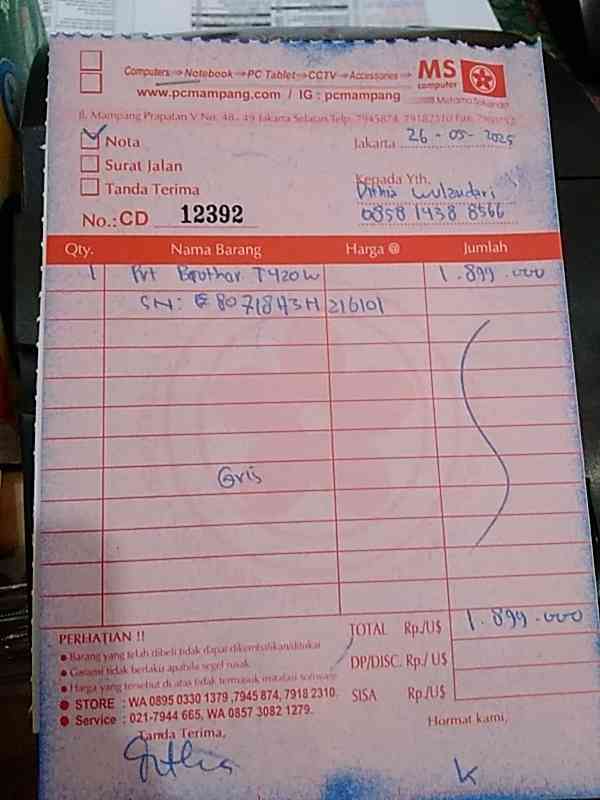 Computers Notebook PC Tablet CCTV Accessories
www.pcmampang.com / IG : pcmampang
MS
computer
Jl. Mampang Prapatan V No. 48 - 49 Jakarta Selatan Telp. 7945874, 79182310 Fax.
Nota
Jakarta 26 - 05 - 2025
Surat Jalan
Kepada Yth.
Tanda Terima
0858 1438 8566
No.: CD 12392
Qty. Nama Barang Harga @ Jumlah
1 Prt Brother T420W 1.899.000
SN: E80718H3H216101
Gris
TOTAL Rp./U$ 1.899.000
PERHATIAN !!
Barang yang telah dibeli tidak dapat dikembalikan/ditukar
Garansi tidak berlaku apabila segel rusak
DP/DISC. Rp./ U$
Harga yang tersebut di atas tidak termasuk instalasi software
STORE : WA 0895 0330 1379 ,7945 874, 7918 2310.
SISA Rp./U$
Service : 021-7944 665, WA 0857 3082 1279.
Tanda Terima,
Hormat kami,